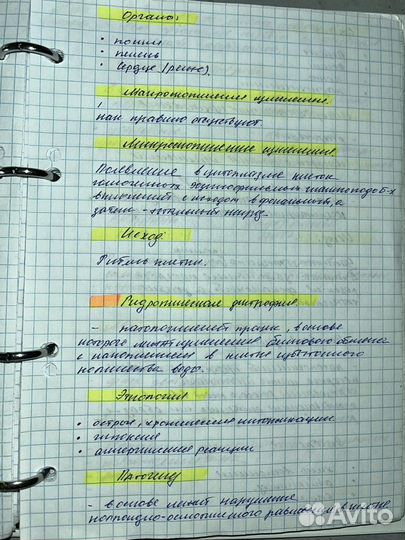 Органы:
• почки
• печень
• сердце (реже).
Макроскопические изменения.
как правило отсутствуют.
Микроскопические изменения.
Появление в цитоплазме клеток
гомогенных эозинофильных гиалиноподоб-х
включений с исходом в фокальный, а
затем - тотальный некроз
Исход:
Гибель клетки.
Гидропическая дистрофия
- патологический процесс, в основе
которого лежит нарушение белкового обмена
с накоплением в клетке избыточного
количества воды.
Этиология
• острые, хронические интоксикации
• гипоксия
• аллергические реакции
Патогенез
- в основе лежит нарушение
коллоидно-осмотического в клетке
Avito